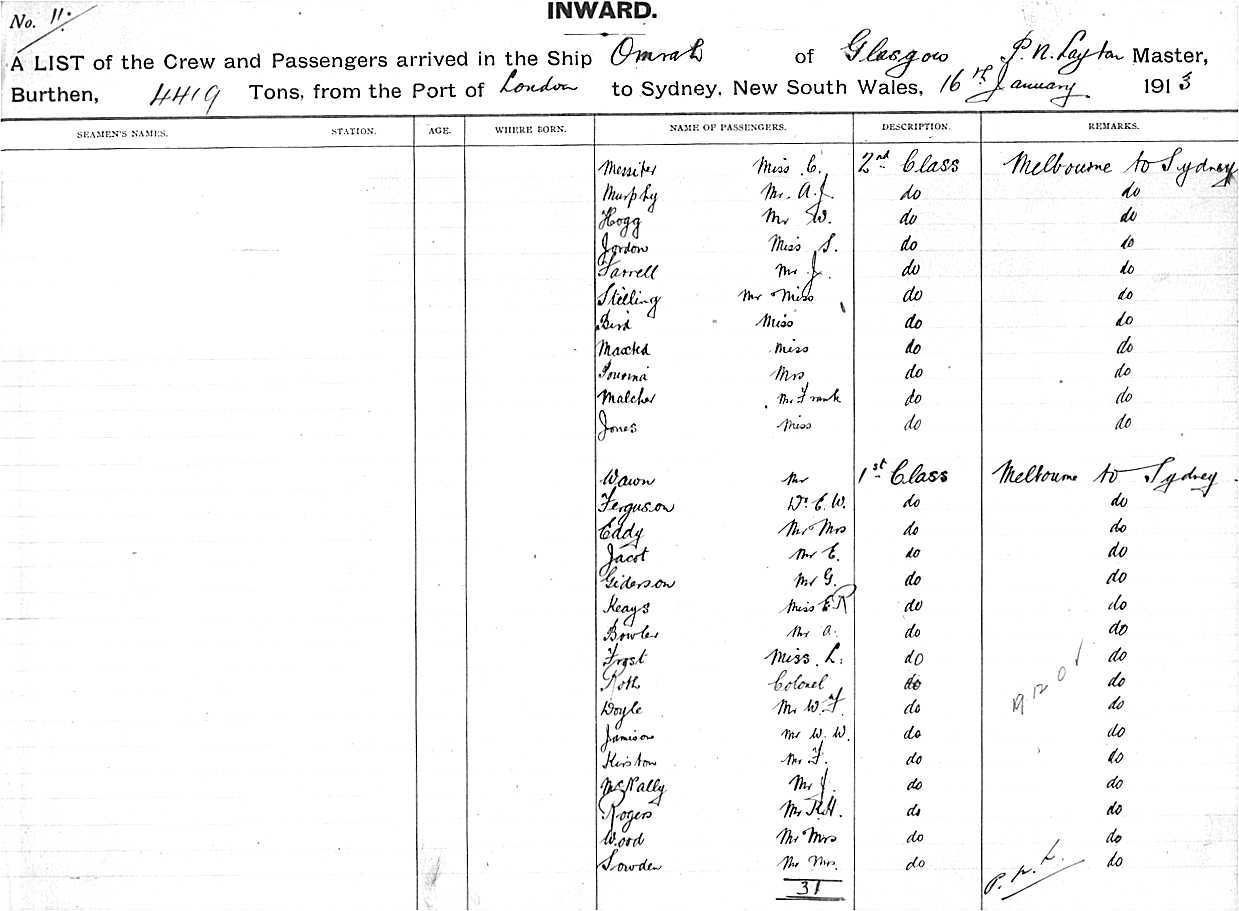 No. 11.
INWARD.
A LIST of the Crew and Passengers arrived in the Ship Omrah of Glasgow P. N. Layton Master,
Burthen, 4419 Tons, from the Port of London to Sydney, New South Wales, 16th January 1913
SEAMEN'S NAMES. STATION. AGE. WHERE BORN. NAME OF PASSENGERS. DESCRIPTION. REMARKS.
Messiter Miss C. 2nd Class Melbourne to Sydney
Murphy Mr. A. J. do do
Hogg Mr W. do do
Jordon Miss S. do do
Farrell Mr J. do do
Stelling Mr Miss do do
Bird Miss do do
Maxted Miss do do
Mrs do do
Malcher Mr Frank do do
Jones Miss do do
Wawn Mr 1st Class Melbourne to Sydney.
Ferguson Dr. E. W. do do
Eddy Mr Mrs do do
Jacot Mr E. do do
Giderson Mr G. do do
Keays Miss E R do do
Bowler Mr A. do do
Frost Miss L. do do
Roth Colonel do do
Doyle Mr W. F. do do
Jamison Mr W. W. do do
Kirston Mr F. do do
McNally Mr J. do do
Rogers Mr R. H. do do
Wood Mr Mrs do do
Sowden Mr Mrs. do do
31
P. N. L.